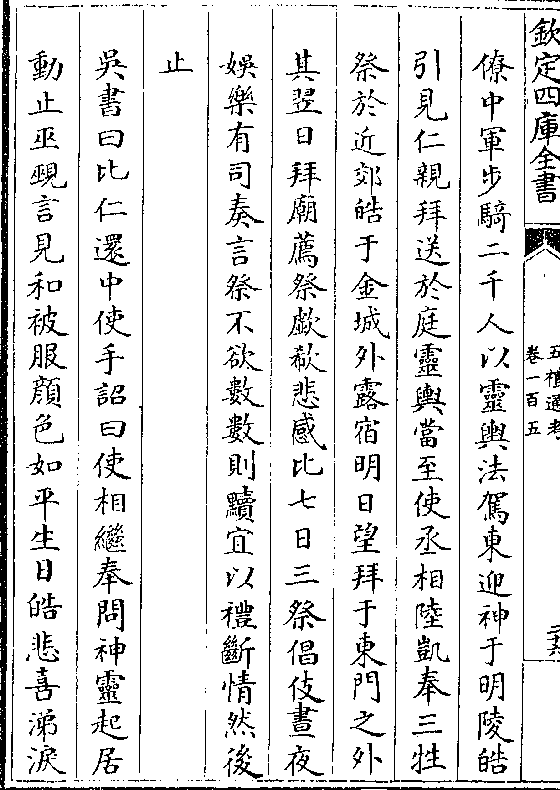 欽定四庫全書
五禮通考
卷一百五
僚中軍步騎二千人以靈輿法駕東迎神于明陵皓
引見仁親拜送於庭靈輿當至使丞相陸凱奉三牲
祭於近郊皓于金城外露宿明日望拜于東門之外
其翌日拜廟薦祭歔欷悲感比七日三祭倡伎晝夜
娛樂有司奏言祭不欲數數則黷宜以禮斷情然後
止
吳書曰比仁還中使手詔曰使相繼奉問神靈起居
動止巫覡言見和被服顔色如平生日皓悲喜涕淚